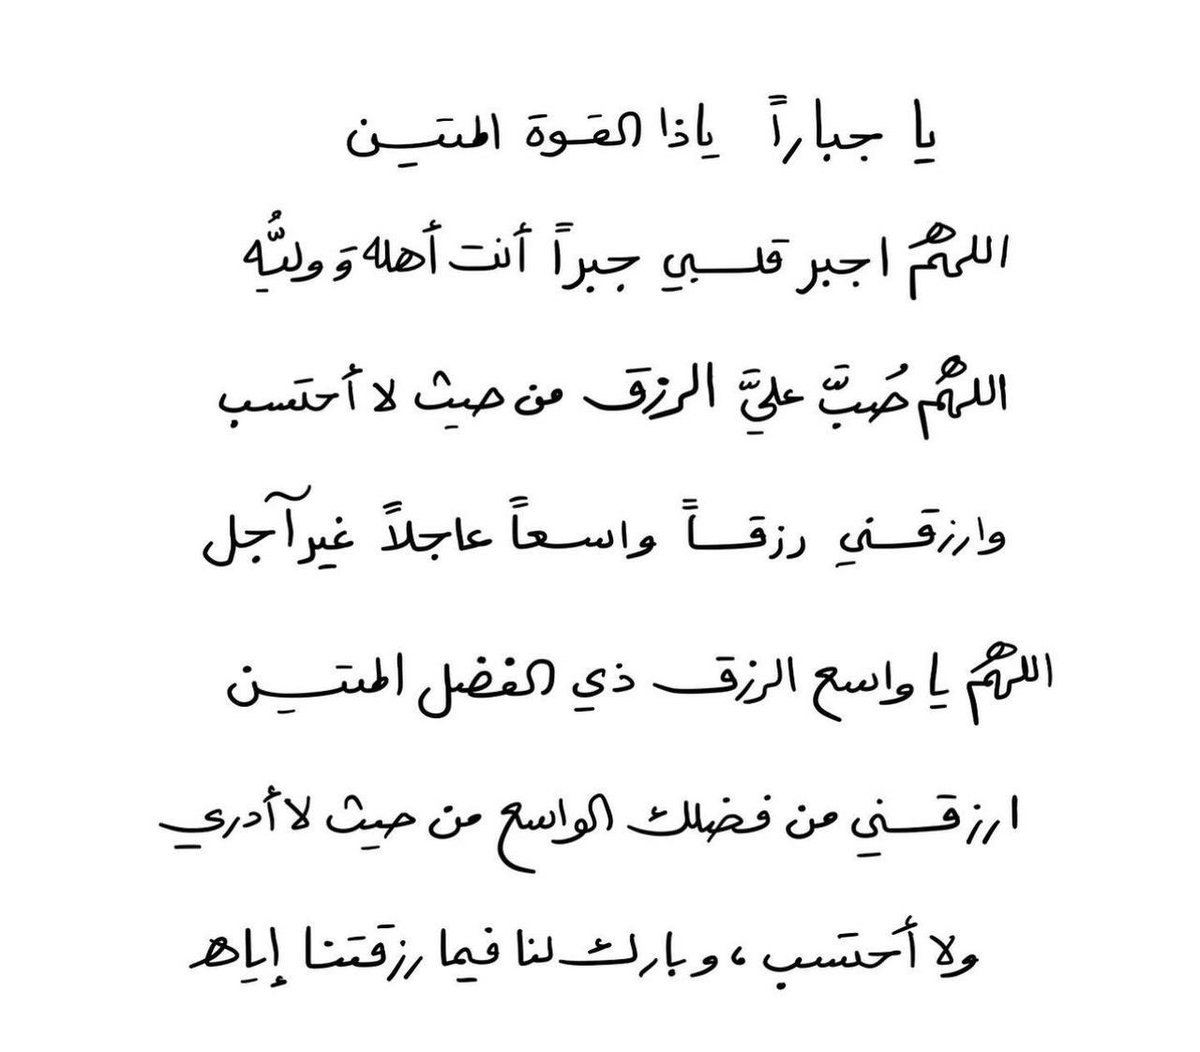 يا جباراً ياذا القوة المتين
اللهمَّ اجبر قلبي جبراً أنت أهله وَ وليُّه
اللهمَّ صُبَّ عليَّ الرزق من حيث لا أحتسب
وارزقني رزقاً واسعاً عاجلاً غير آجل
اللهمَّ يا واسع الرزق ذي الفضل المتين
ارزقني من فضلك الواسع من حيث لا أدري
ولا أحتسب ، وبارك لنا فيما رزقتنا إياه